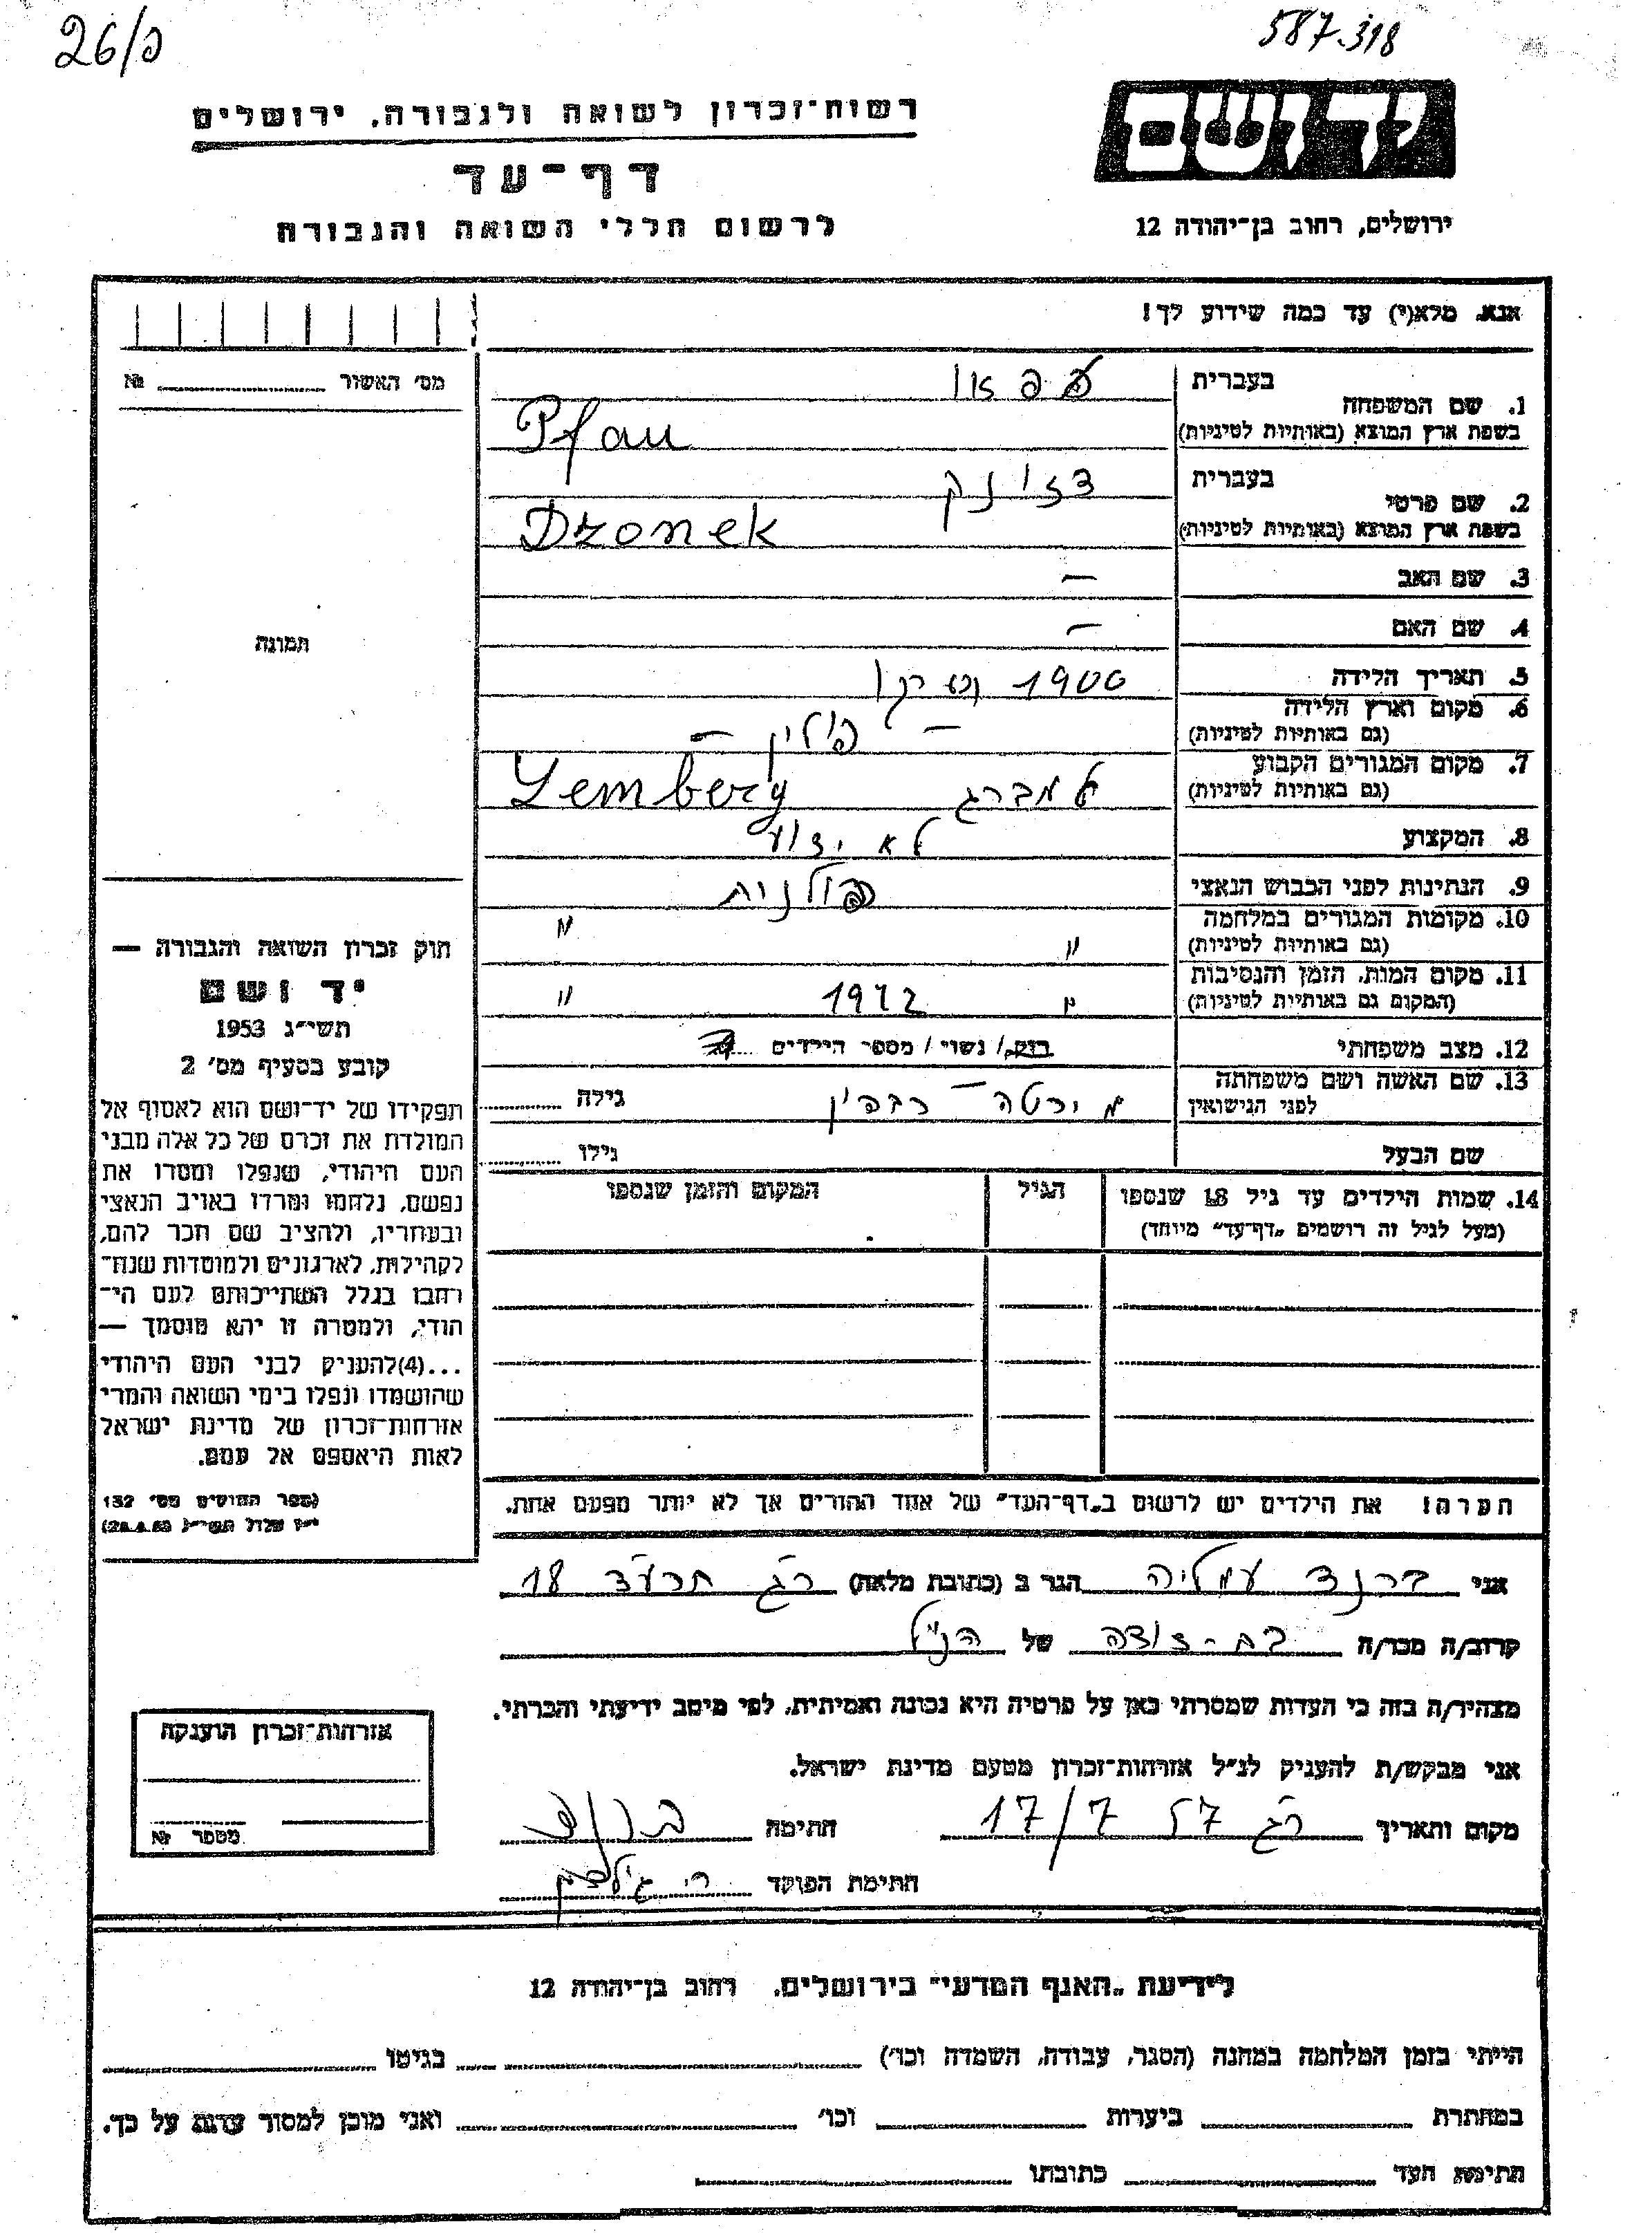 26/פ
587.318
רשות־זכרון לשואה ולגבורה, ירושלים
דף־עד
לרשום חללי השואה והגבורה
יד ושם
ירושלים, רחוב בן־יהודה 12
אנא, מלא(י) עד כמה שידוע לך!
מס׳ האשור № 
תמונה
1. שם המשפחה
בעברית
פפאו
בשפת ארץ המוצא (באותיות לטיניות)
Pfau
2. שם פרטי
בעברית
דזונק
בשפת ארץ המוצא (באותיות לטיניות)
Dzonek
3. שם האב –
4. שם האם –
5. תאריך הלידה 1900
6. מקום וארץ הלידה
(גם באותיות לטיניות)
– פולין –
7. מקום המגורים הקבוע
(גם באותיות לטיניות)
למברג Lemberg
8. המקצוע לא ידוע
9. הנתינות לפני הכבוש הנאצי פולנית
10. מקומות המגורים במלחמה
(גם באותיות לטיניות)
" "
11. מקום המות, הזמן והנסיבות
(המקום גם באותיות לטיניות)
" 1942 "
12. מצב משפחתי רווק/ נשוי/ מספר הילדים
13. שם האשה ושם משפחתה
לפני הנישואין
גילה
שם הבעל גילו
14. שמות הילדים עד גיל 18 שנספו הגיל המקום והזמן שנספו
(מעל לגיל זה רושמים „דף־עד״ מיוחד)
הערה! את הילדים יש לרשום ב„דף־העד״ של אחד ההורים אך לא יותר מפעם אחת.
חוק זכרון השואה והגבורה —
יד ושם
תשי״ג 1953
קובע בסעיף מס׳ 2
תפקידו של יד־ושם הוא לאסוף אל
המולדת את זכרם של כל אלה מבני
העם היהודי, שנפלו ומסרו את
נפשם, נלחמו ומרדו באויב הנאצי
ובעוזריו, ולהציב שם וזכר להם,
לקהילות, לארגונים ולמוסדות שנח־
רבו בגלל השתייכותם לעם הי־
הודי, ולמטרה זו יהא מוסמך —
...(4)להעניק לבני העם היהודי
שהושמדו ונפלו בימי השואה והמרי
אזרחות־זכרון של מדינת ישראל
לאות היאספם אל עמם.
(ספר החוקים מס׳ 132
אני ברנד עמליה הגר ב (כתובת מלאה) ר״ג תרע״ד 18
קרוב/ה מכר/ה בת-דודה של הנ״ל
מצהיר/ה בזה כי העדות שמסרתי כאן על פרטיה היא נכונה ואמיתית, לפי מיטב ידיעתי והכרתי.
אני מבקש/ת להעניק לנ״ל אזרחות־זכרון מטעם מדינת ישראל.
מקום ותאריך ר״ג 57 17/7 חתימה ברנד
חתימת הפוקד
אזרחות־זכרון הוענקה
מספר №
לידיעת „האגף המדעי״ בירושלים, רחוב בן־יהודה 12
הייתי בזמן המלחמה במחנה (הסגר, עבודה, השמדה וכו׳) בגיטו
במחתרת ביערות וכו׳ ואני מוכן למסור עדות על כך.
חתימת העד כתובתו